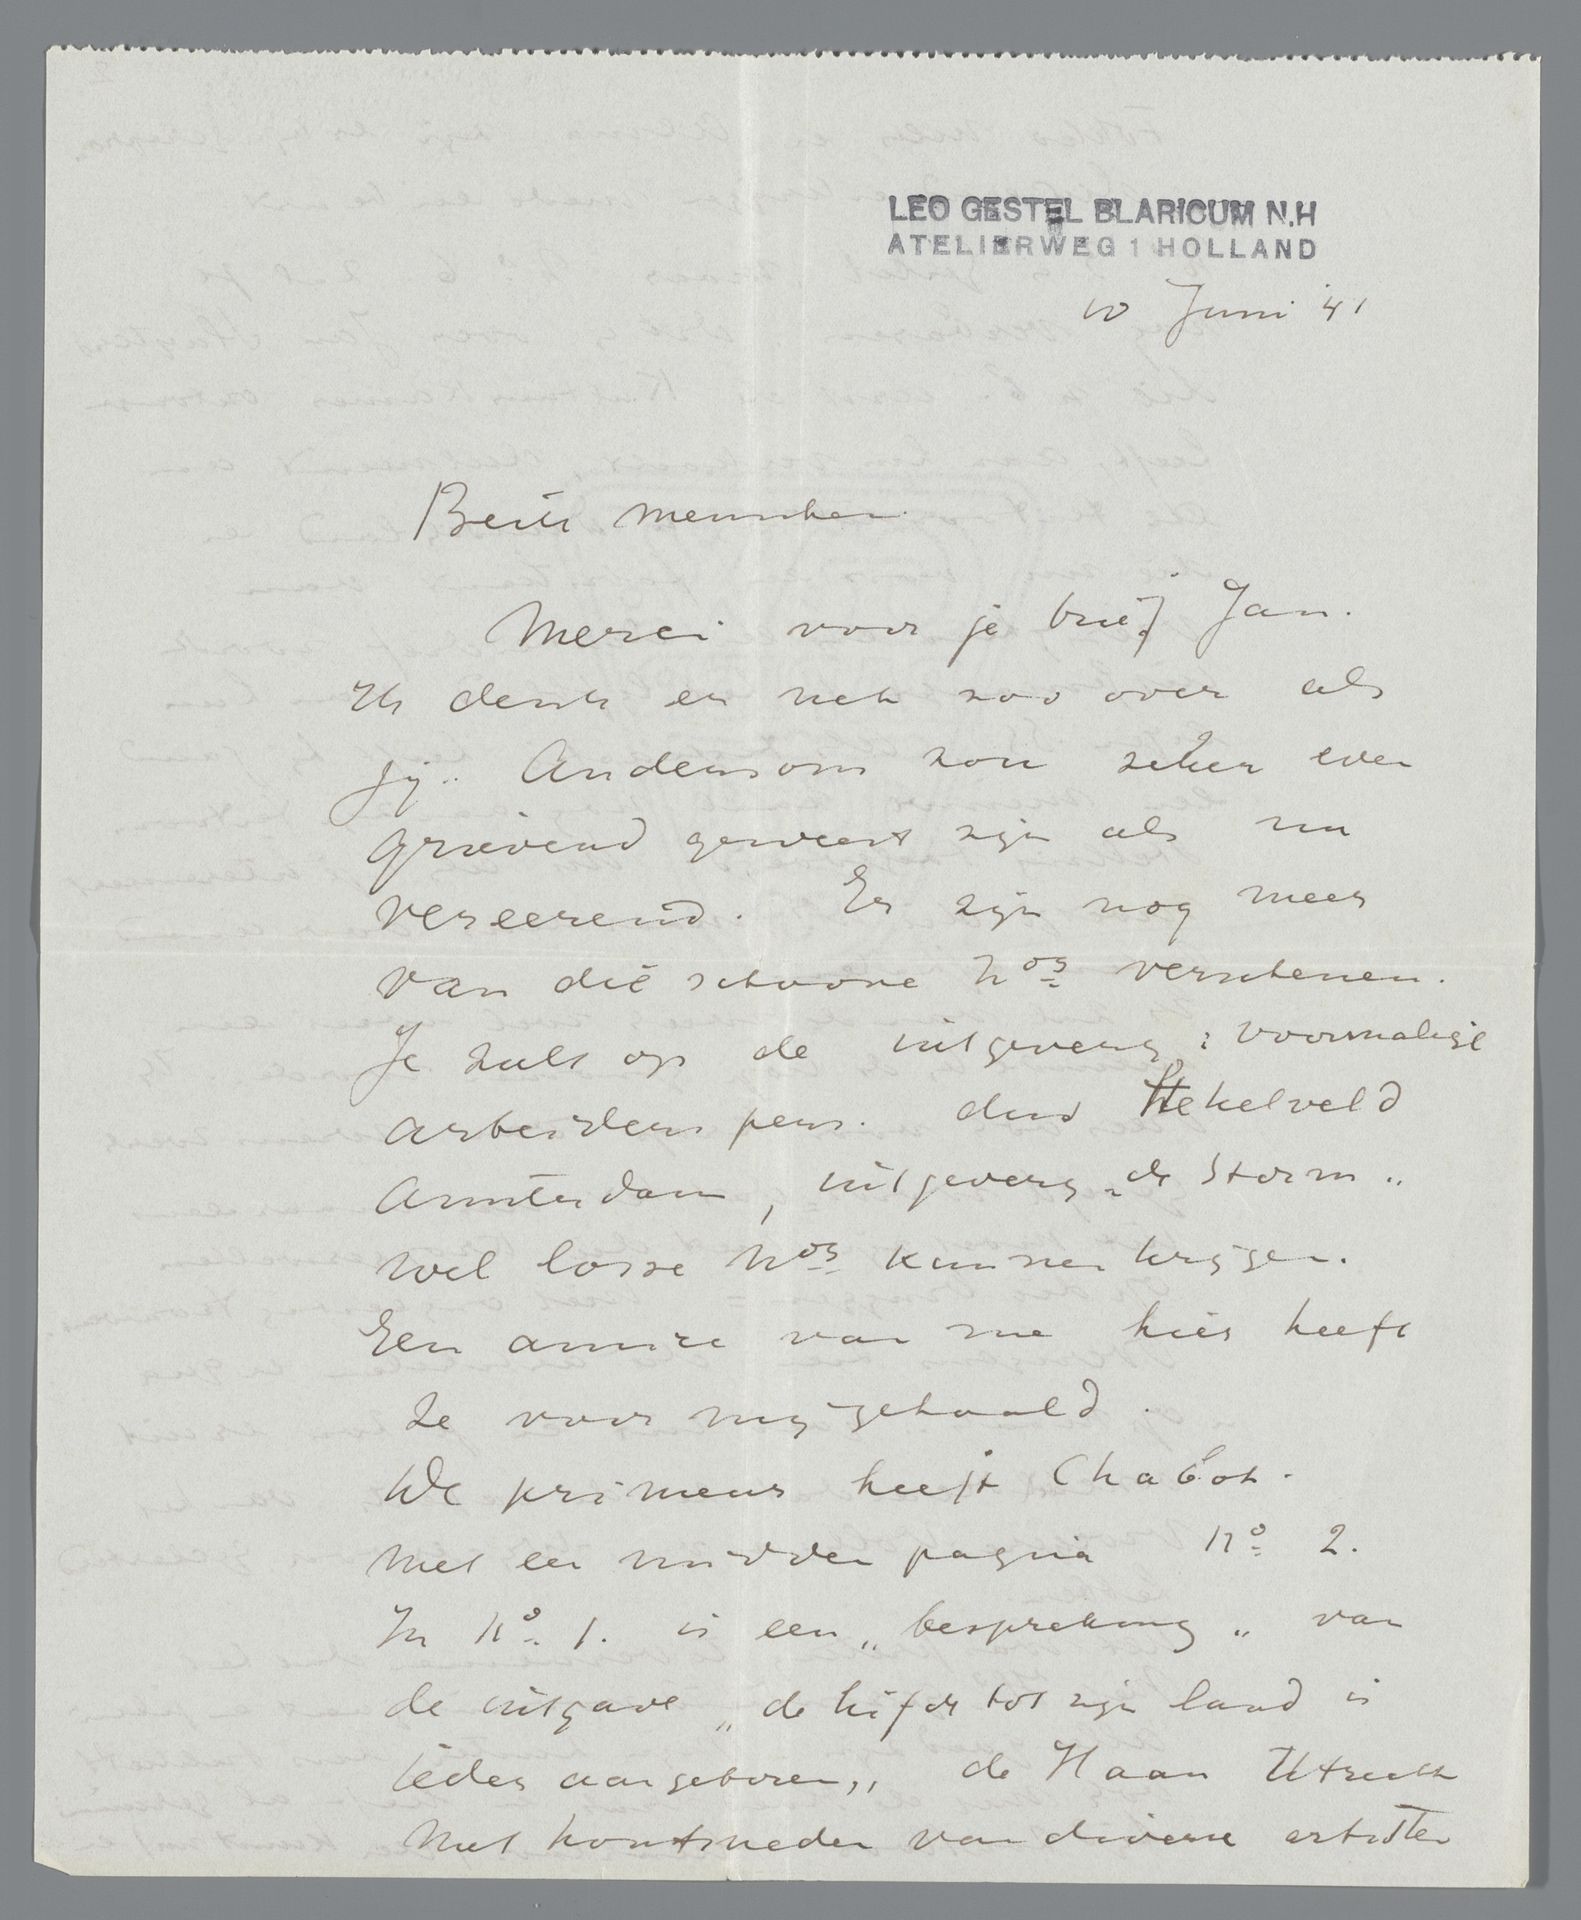 LEO GESTEL BLARICUM N.H
ATELIERWEG 1 HOLLAND
10 Juni '41
Beste menschen.
Merci voor je brief Jan.
Ik denk er net zoo over als
jij.. Andersom zou zeker even
grievend geweest zijn als nu
vereerend. Er zijn nog meer
van die schoone Nos verschenen.
Je zult op de uitgeverij: voormalige
arbeiders pers. dus Hekelveld
Amsterdam, uitgeverij „de Storm„
wel losse Nos kunnen krijgen.
Een amice van me hier heeft
ze voor mij gehaald.
De primeur heeft Chabot.
met een midden pagina No 2.
In No 1. is een „bespreking„ van
de uitgave „de liefde tot zijn land is
ieder aangeboren„ de Haan Utrecht
met houtsneden van diverse artisten